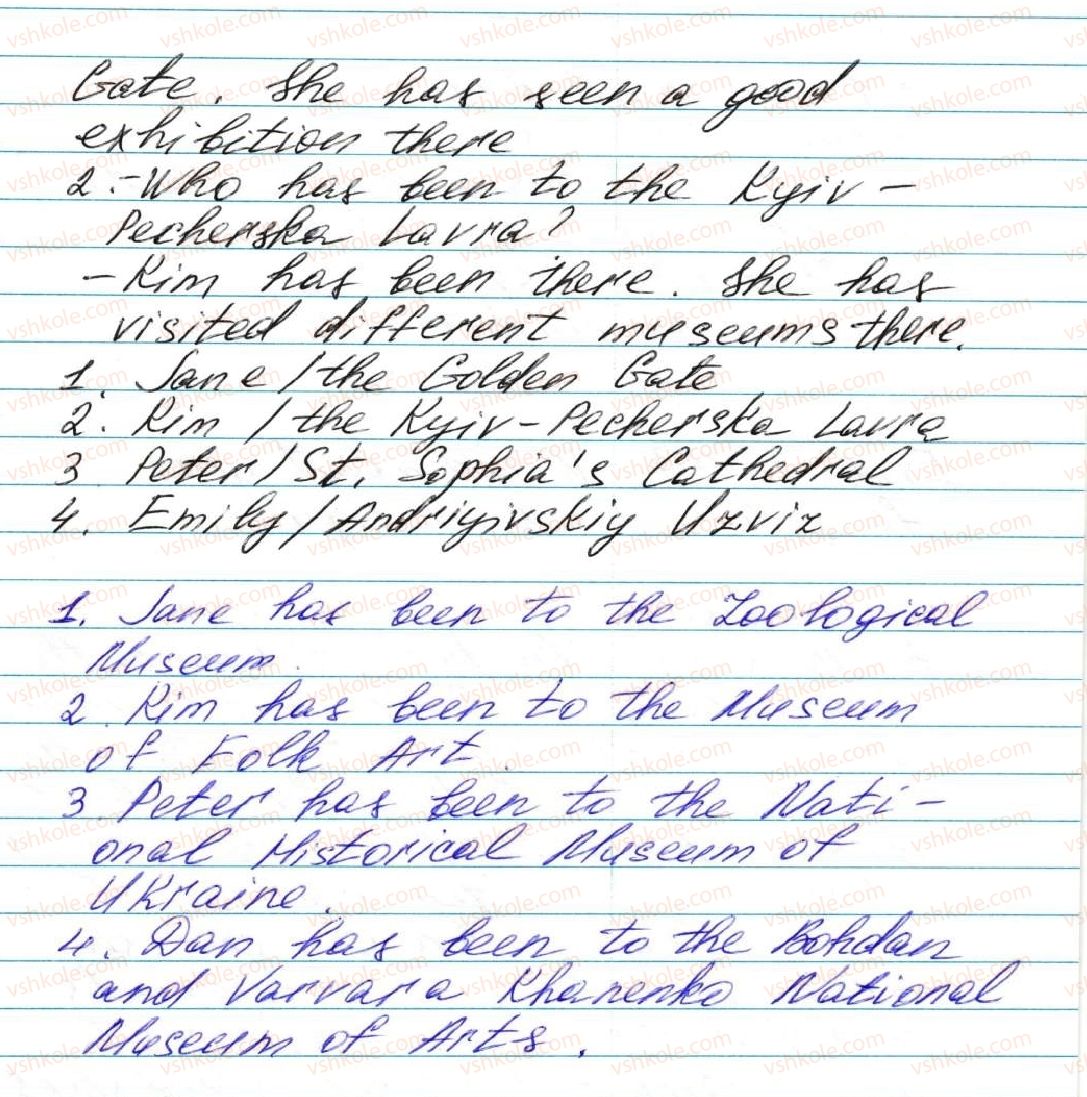 Gate. She has seen a good
exhibition there
2.-Who has been to the Kyiv-
Pecherska Lavra?
- Kim has been there. She has
visited different museums there.
1. Jane/the Golden Gate
2. Kim / the Kyiv-Pecherska Lavra
3 Peter/St. Sophia's Cathedral
4. Emily/Andriyivskiy Uzviz
1. Jane has been to the Zoological
Museum.
2. Kim has been to the Museum
of Folk Art.
3 Peter has been to the Nati-
onal Historical Museum of
Ukraine.
4. Dan has been to the Bohdan
and Varvara Khanenko National
Museum of Arts.
vshkole.com